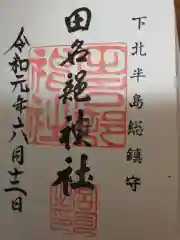 下北半島総鎮守
田名部神社
令和元年六月十二日